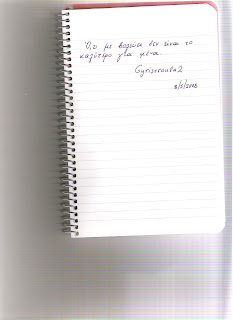 Ό,τι με βολεύει δεν είναι το
καλύτερο για μένα...
Gyriseoula2
8/5/2008